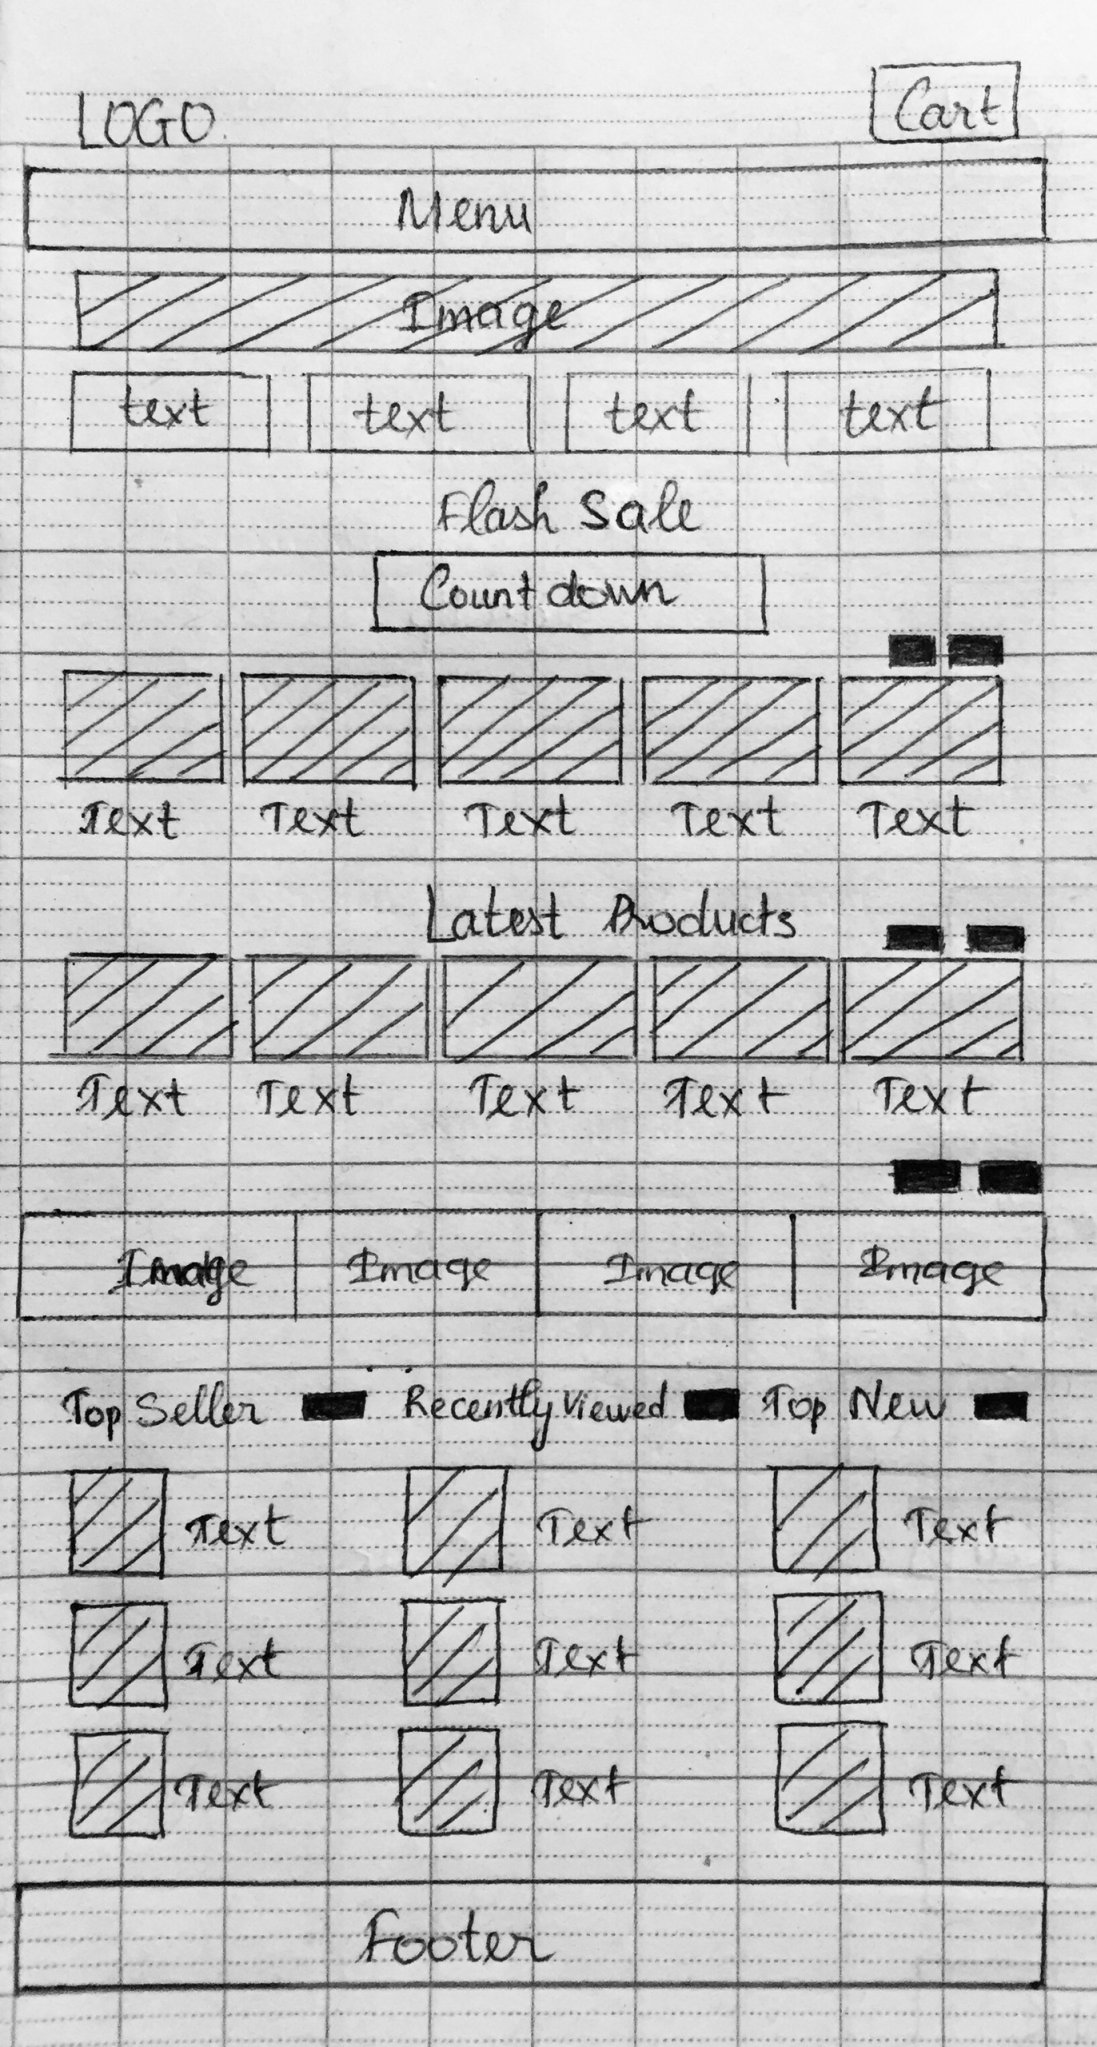 LOGO Cart
Menu
Image
text text text text
Flash Sale
Countdown
Text Text Text Text Text
Latest Products
Text Text Text Text Text
Image Image Image Image
Top Seller Recently Viewed Top New
Text Text Text
Text Text Text
Text Text Text
Footer